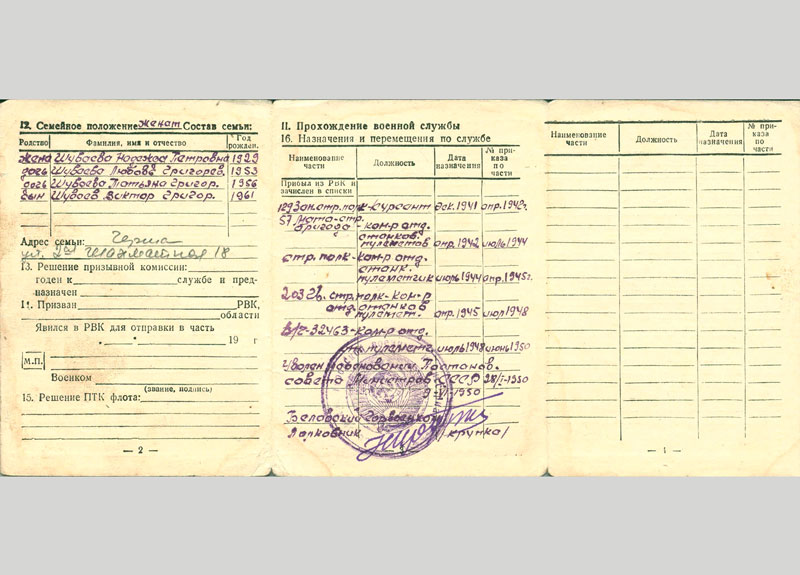 12. Семейное положение женат Состав семьи:
Родство Фамилия, имя и отчество Год рожден.
жена Шубаева Надежда Петровна 1929
дочь Шубаева Любовь Григорьев. 1953
дочь Шубаева Татьяна Григор. 1956
сын Шубаев Виктор Григор. 1961
Адрес семьи:
ул. 18
13. Решение призывной комиссии:
годен к службе и пред-
назначен
14. Призван РВК,
области
Явился в РВК для отправки в часть
19 г
М.П.
Военком
(звание, подпись)
15. Решение ПТК флота:
— 2 —
II. Прохождение военной службы
16. Назначения и перемещения по службе
Наименование части Должность Дата назначения № при-каза по части
Прибыл из РВК и
зачислен в списки
129 Зап. стр. полк - курсант дек. 1941 апр. 1942г.
57 мото-стр.
бригада - ком-р отд.
станков.
пулеметов апр. 1942 июль 1944
стр. полк - ком-р отд.
станк.
пулеметчик июль 1944 апр. 1945г.
203 Гв. стр. полк - ком-р
отд. станков
пулемет. апр. 1945 июл 1948
В/г-32463 - ком-р отд.
пулеметч. июль 1948 июнь 1950
Уволен на основании Постанов.
совета Министров СССР 28/I-1950
1950
Горвоенком
Полковник /крупка/
Наименование
части Должность Дата
назначения № при-
каза по
части